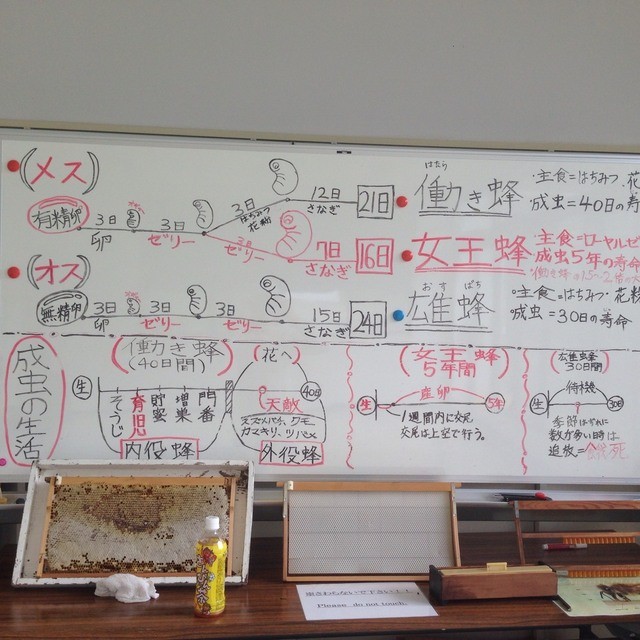 (メス)
有精卵 3日 卵 3日 ゼリー 3日 はちみつ 花粉 12日 さなぎ 21日
はたら
働き蜂
・主食=はちみつ・花
・成虫=40日の寿
3日 ゼリー 7日 さなぎ 16日
女王蜂
・主食=ローヤルゼ
成虫5年の寿命
(オス)
無精卵 3日 卵 3日 ゼリー 3日 ゼリー 15日 さなぎ 24日
おす ばち
雄蜂
・主食=はちみつ・花粉
成虫=30日の寿命
成虫の生活
(働き蜂)
(40日間)
生 そうじ 育児 貯蜜 増巣 門番
内役蜂
(花へ)
40日
天敵
スズメバチ、クモ
カマキリ、ツバメ
外役蜂
(女王蜂)
5年間
生 産卵 5年
1週間内に交尾
交尾は上空で行う。
(雄蜂)
30日間
待機
生 30日
季節はずれに
数が多い時は
追放=餓死
Please do not touch.